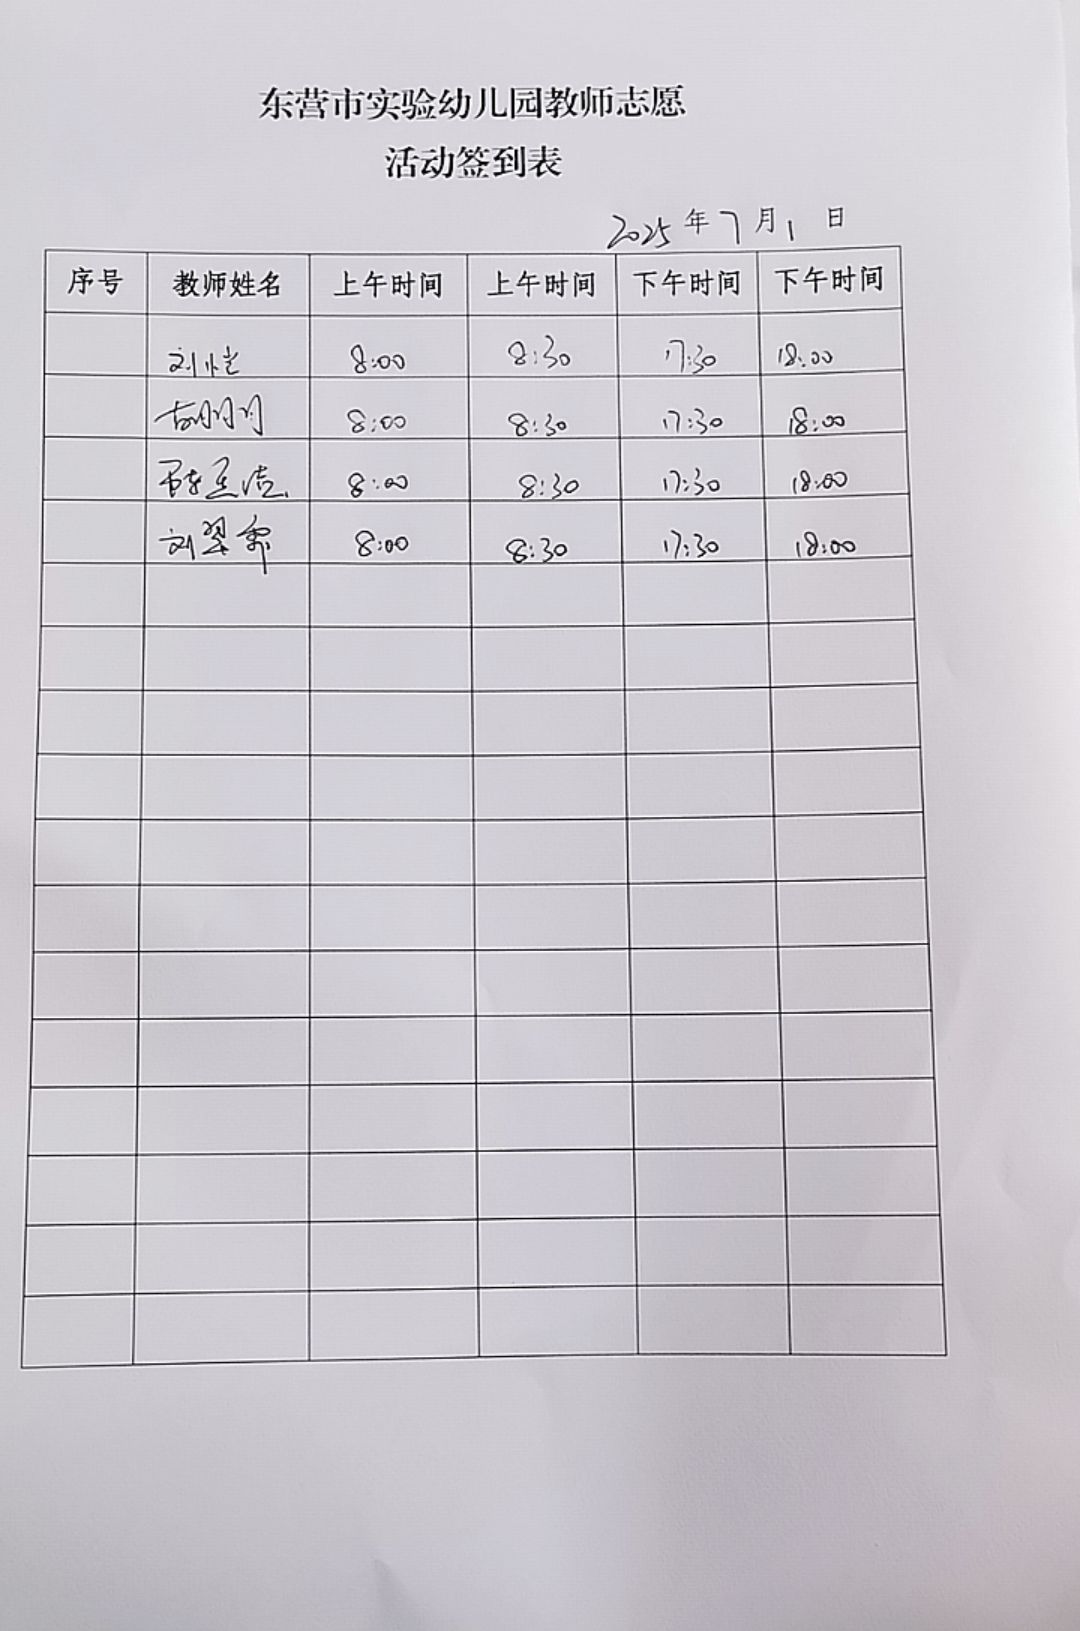 东营市实验幼儿园教师志愿
活动签到表
2025年7月1日
序号 教师姓名 上午时间 上午时间 下午时间 下午时间
刘恺 8:00 8:30 17:30 18:00
胡明月 8:00 8:30 17:30 18:00
8:00 8:30 17:30 18:00
刘翠霞 8:00 8:30 17:30 18:00